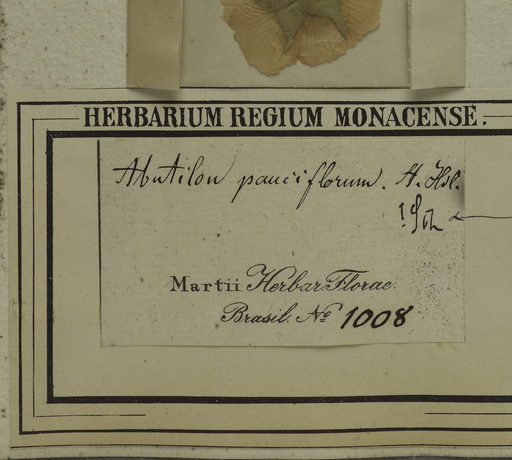 HERBARIUM REGIUM MONACENSE.
Abutilon pauciflorum. A. Hil.
Martii Herbar. Florae
Brasil. No 1008